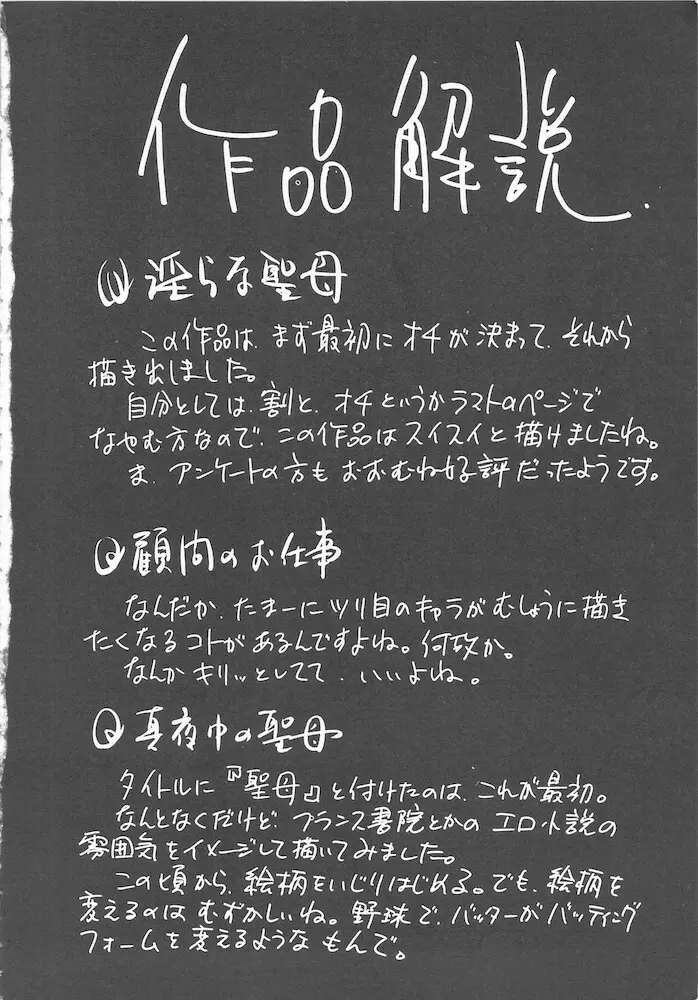 作品解説.
淫らな聖母
この作品は、まず最初にオチが決まって、それから
描き出しました。
自分としては、割と、オチというかラストのページで
なやむ方なので、この作品はスイスイと描けましたね。
ま、アンケートの方もおおむね好評だったようです。
顧問のお仕事
なんだか、たまーにツリ目のキャラがむしょうに描き
たくなるコトがあるんですよね。何故か。
なんかキリッとしてて、いいよね。
真夜中の聖母
タイトルに『聖母』と付けたのは、これが最初。
なんとなくだけど、フランス書院とかのエロ小説の
雰囲気をイメージして描いてみました。
この頃から、絵柄をいじりはじめる。でも、絵柄を
変えるのはむずかしいね。野球で、バッターがバッティング
フォームを変えるようなもんで。